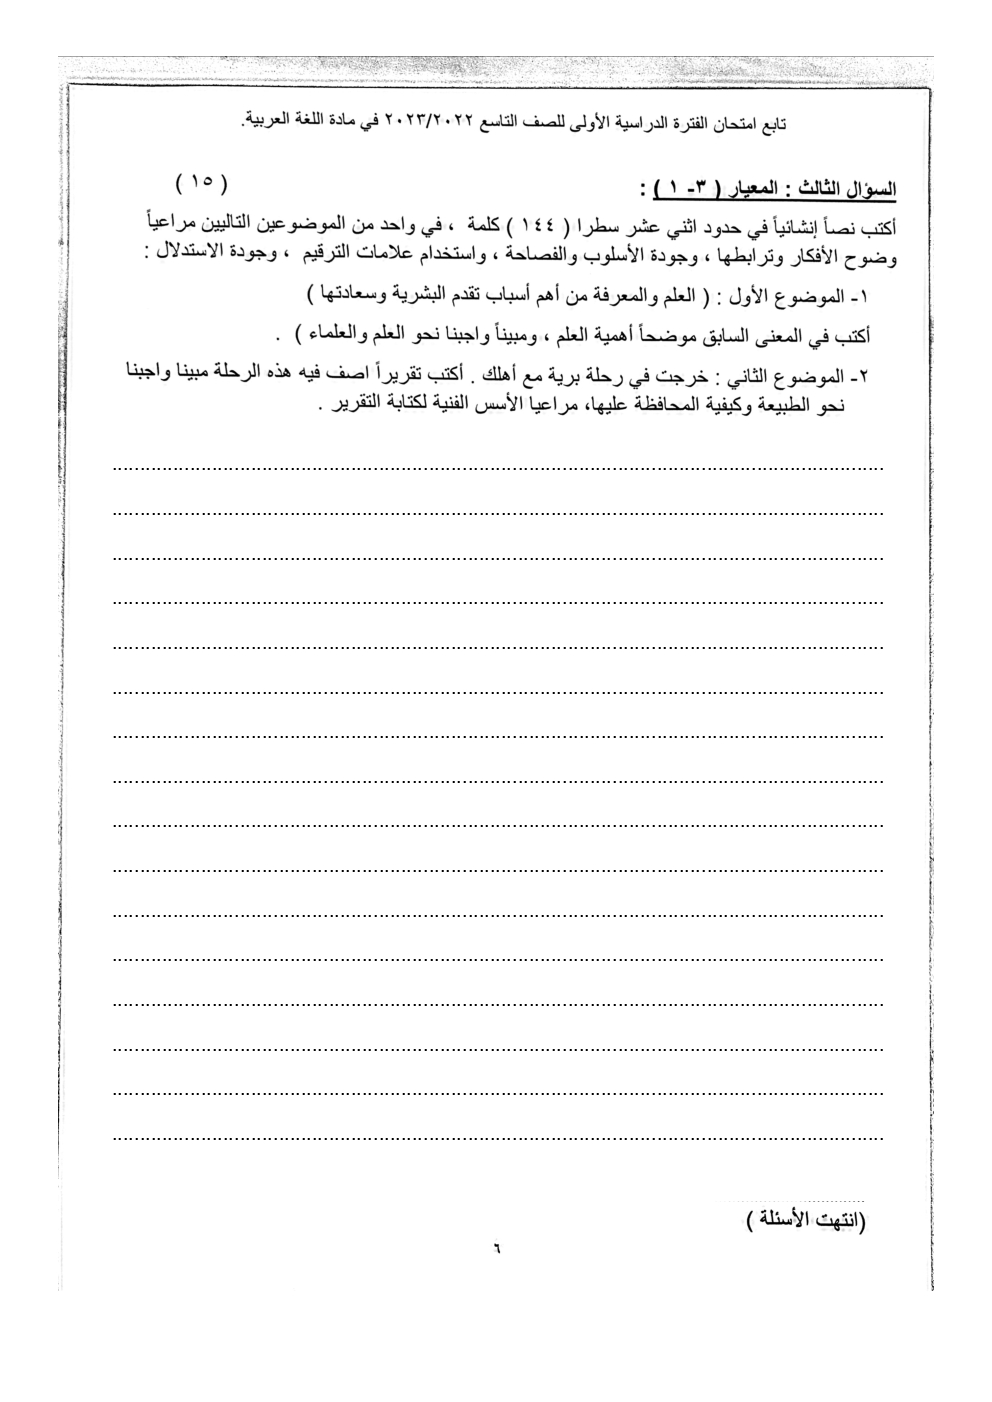 تابع امتحان الفترة الدراسية الأولى للصف التاسع ٢٠٢٣/٢٠٢٢ في مادة اللغة العربية.
السؤال الثالث : المعيار ( ٣- ١ ) : ( ١٥ )
أكتب نصاً إنشائياً في حدود اثني عشر سطرا ( ١٤٤ ) كلمة ، في واحد من الموضوعين التاليين مراعياً
وضوح الأفكار وترابطها ، وجودة الأسلوب والفصاحة ، واستخدام علامات الترقيم ، وجودة الاستدلال :
١- الموضوع الأول : ( العلم والمعرفة من أهم أسباب تقدم البشرية وسعادتها )
أكتب في المعنى السابق موضحاً أهمية العلم ، ومبيناً واجبنا نحو العلم والعلماء ) .
٢- الموضوع الثاني : خرجت في رحلة برية مع أهلك . أكتب تقريراً اصف فيه هذه الرحلة مبينا واجبنا
نحو الطبيعة وكيفية المحافظة عليها، مراعيا الأسس الفنية لكتابة التقرير .
(انتهت الأسئلة )
٦